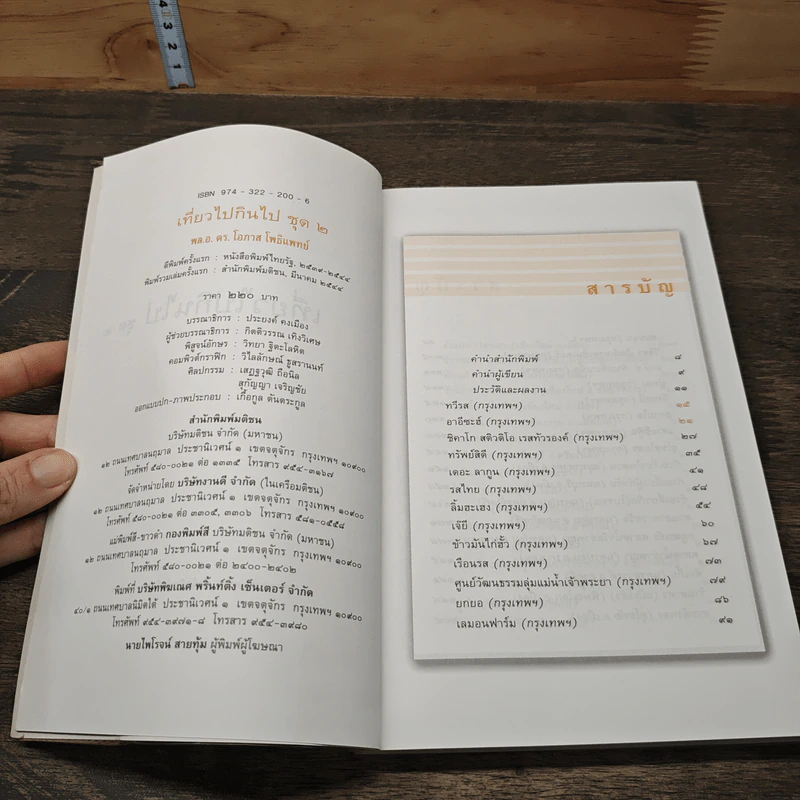 ISBN 974 - 322 - 200 - 6
เที่ยวไปกินไป ชุด ๒
พล.อ. ดร. โอภาส โพธิแพทย์
ตีพิมพ์ครั้งแรก : หนังสือพิมพ์ไทยรัฐ, ๒๕๓๙-๒๕๔๔
พิมพ์รวมเล่มครั้งแรก : สำนักพิมพ์มติชน, มีนาคม ๒๕๔๔
ราคา ๒๒๐ บาท
บรรณาธิการ : ประยงค์ คงเมือง
ผู้ช่วยบรรณาธิการ : กิตติวรรณ เทิงวิเศษ
พิสูจน์อักษร : วิทยา ฐิตะโลหิต
คอมพิวต์กราฟิก : วิไลลักษณ์ ชูสรานนท์
ศิลปกรรม : เสฏฐวุฒิ ถือนิล
สุกัญญา เจริญชัย
ออกแบบปก-ภาพประกอบ : เกื้อกูล ตันตระกูล
สำนักพิมพ์มติชน
บริษัทมติชน จำกัด (มหาชน)
๑๒ ถนนเทศบาลนฤมาล ประชานิเวศน์ ๑ เขตจตุจักร กรุงเทพฯ ๑๐๙๐๐
โทรศัพท์ ๕๘๐-๐๐๒๑ ต่อ ๑๓๓๕ โทรสาร ๙๕๔-๓๑๖๗
จัดจำหน่ายโดย บริษัทงานดี จำกัด (ในเครือมติชน)
๑๒ ถนนเทศบาลนฤมาล ประชานิเวศน์ ๑ เขตจตุจักร กรุงเทพฯ ๑๐๙๐๐
โทรศัพท์ ๕๘๐-๐๐๒๑ ต่อ ๓๓๐๕, ๓๓๐๖ โทรสาร ๕๘๑-๐๕๕๘
แม่พิมพ์สี-ขาวดำ กองพิมพ์สี บริษัทมติชน จำกัด (มหาชน)
๑๒ ถนนเทศบาลนฤมาล ประชานิเวศน์ ๑ เขตจตุจักร กรุงเทพฯ ๑๐๙๐๐
โทรศัพท์ ๕๘๐-๐๐๒๑ ต่อ ๒๔๐๐-๒๔๐๒
พิมพ์ที่ บริษัทพิมเณศ พริ้นท์ติ้ง เซ็นเตอร์ จำกัด
๔๐/๑ ถนนเทศบาลนิมิตใต้ ประชานิเวศน์ ๑ เขตจตุจักร กรุงเทพฯ ๑๐๙๐๐
โทรศัพท์ ๙๕๔-๓๙๗๑-๘ โทรสาร ๙๕๔-๓๙๘๐
นายไพโรจน์ สายทุ้ม ผู้พิมพ์ผู้โฆษณา
สารบัญ
คำนำสำนักพิมพ์ ๘
คำนำผู้เขียน ๙
ประวัติและผลงาน ๑๑
ทวีรส (กรุงเทพฯ) ๑๕
อาอีซะฮ์ (กรุงเทพฯ) ๒๑
ชิคาโก สติวดิโอ เรสทัวรองค์ (กรุงเทพฯ) ๒๗
ทรัพย์สิดี (กรุงเทพฯ) ๓๕
เดอะ ลากูน (กรุงเทพฯ) ๔๑
รสไทย (กรุงเทพฯ) ๔๘
ลิ้มฮะเฮง (กรุงเทพฯ) ๕๔
เจ๊ยี (กรุงเทพฯ) ๖๐
ข้าวมันไก่ฮั้ว (กรุงเทพฯ) ๖๗
เรือนรส (กรุงเทพฯ) ๗๓
ศูนย์วัฒนธรรมลุ่มแม่น้ำเจ้าพระยา (กรุงเทพฯ) ๗๙
ยกยอ (กรุงเทพฯ) ๘๖
เลมอนฟาร์ม (กรุงเทพฯ) ๙๑
4
3
2
1